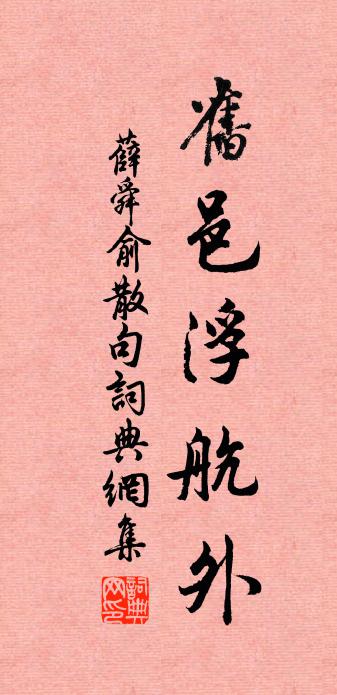 舊邑浮航外
薛舜俞散句詞典網集
詞典网印